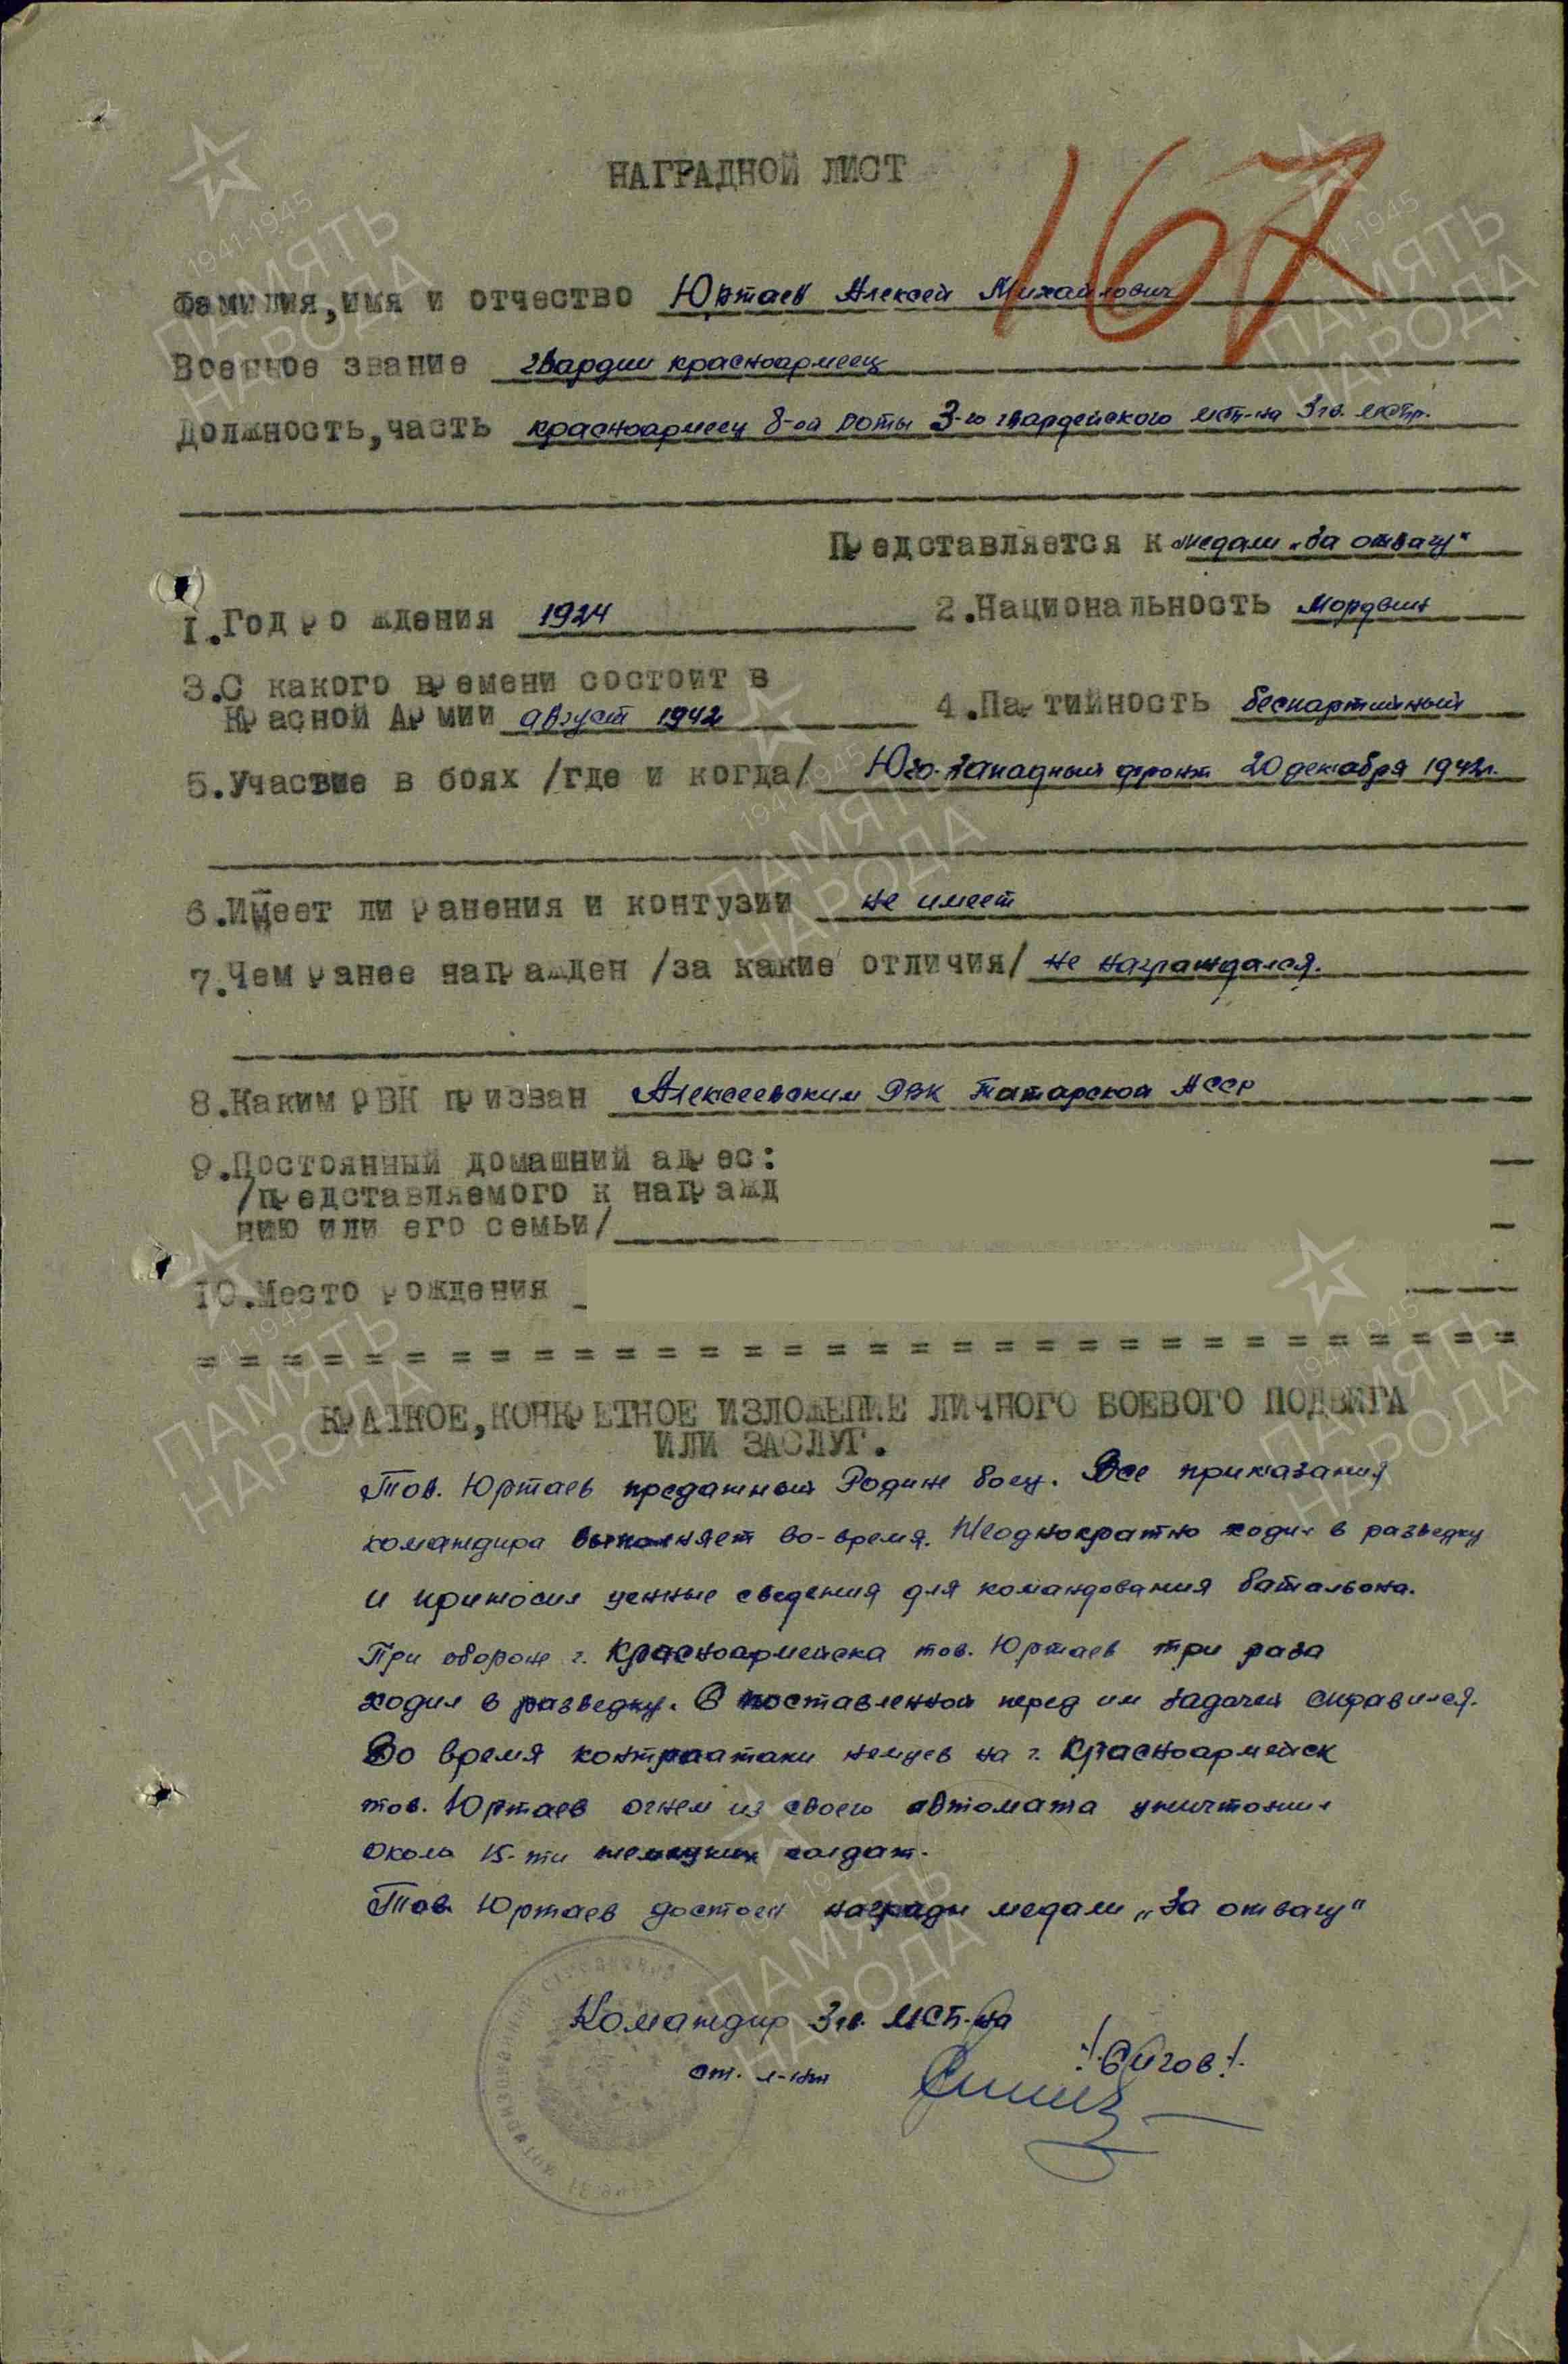 167
НАГРАДНОЙ ЛИСТ
Фамилия,имя и отчество Юртаев Алексей Михайлович
Военное звание гвардии красноармеец
Должность,часть красноармеец 8-ой роты 3-го гвардейского мсб-на 3 гв. мсбр.
Представляется к медали „За отвагу"
1.Год рождения 1924
2.Национальность Мордвин
3.С какого времени состоит в
Красной Армии август 1942
4.Партийность беспартийный
5.Участие в боях /где и когда/ Юго-Западный фронт 20 декабря 1942г.
6.Имеет ли ранения и контузии не имеет
7.Чем ранее награжден /за какие отличия/ не награждался.
8.Каким РВК призван Алексеевским РВК Татарской АССР
9.Постоянный домашний адрес:
/представляемого к награжд
нию или его семьи/
10.Место рождения
= = = = = = = = = = = = = = = = = = = = = = = = = = = = = = = =
КРАТКОЕ,КОНКРЕТНОЕ ИЗЛОЖЕНИЕ ЛИЧНОГО БОЕВОГО ПОДВИГА
ИЛИ ЗАСЛУГ.
Тов. Юртаев преданный Родине боец. Все приказания
командира выполняет во-время. Неоднократно ходил в разведку
и приносил ценные сведения для командования батальона.
При обороне г. Красноармейска тов. Юртаев три раза
ходил в разведку. С поставленной перед им задачей справился.
Во время контратаки немцев на г. Красноармейск
тов. Юртаев огнем из своего автомата уничтожил
около 15-ти немецких солдат.
Тов. Юртаев достоен награды медали „За отвагу"
Командир 3 гв. мсб-на
ст. л-нт
/Сигов/
1941-1945
ПАМЯТЬ
НАРОДА